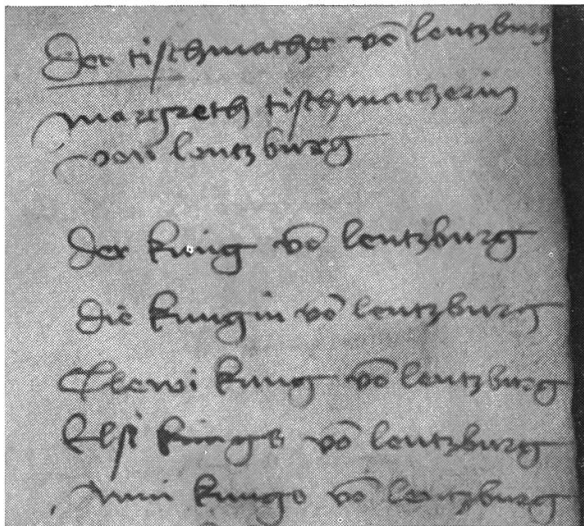 Der tischmacher vō lentzburg
margreth tischmacherin
von lentzburg
Der kung vō lentzburg
die kungin vō lentzburg
Clewi kung vō lentzburg
Elsi kungs vō lentzburg
kungs vō lentzburg